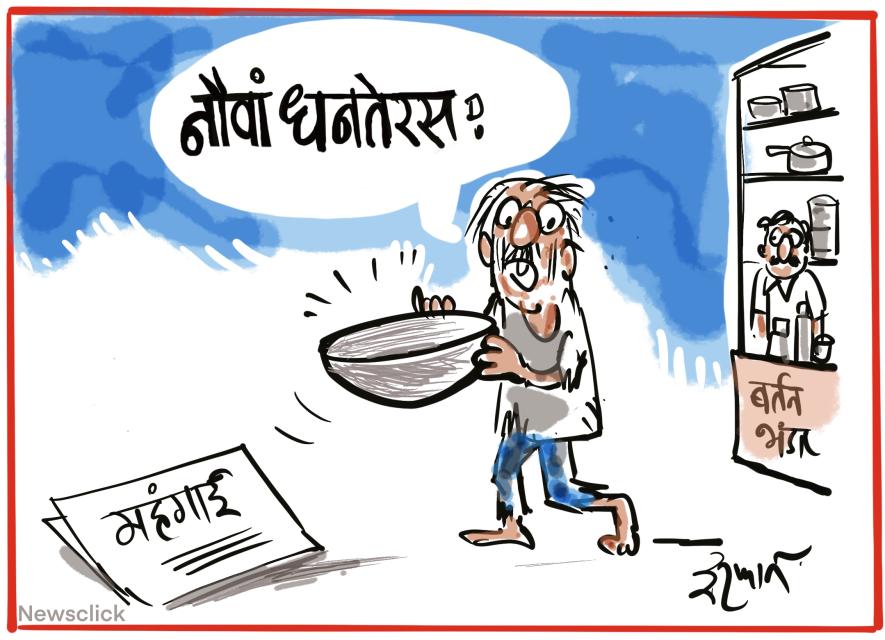 नौवां धनतेरस!
बर्तन
भंडार
महंगाई
इरफ़ान
Newsclick